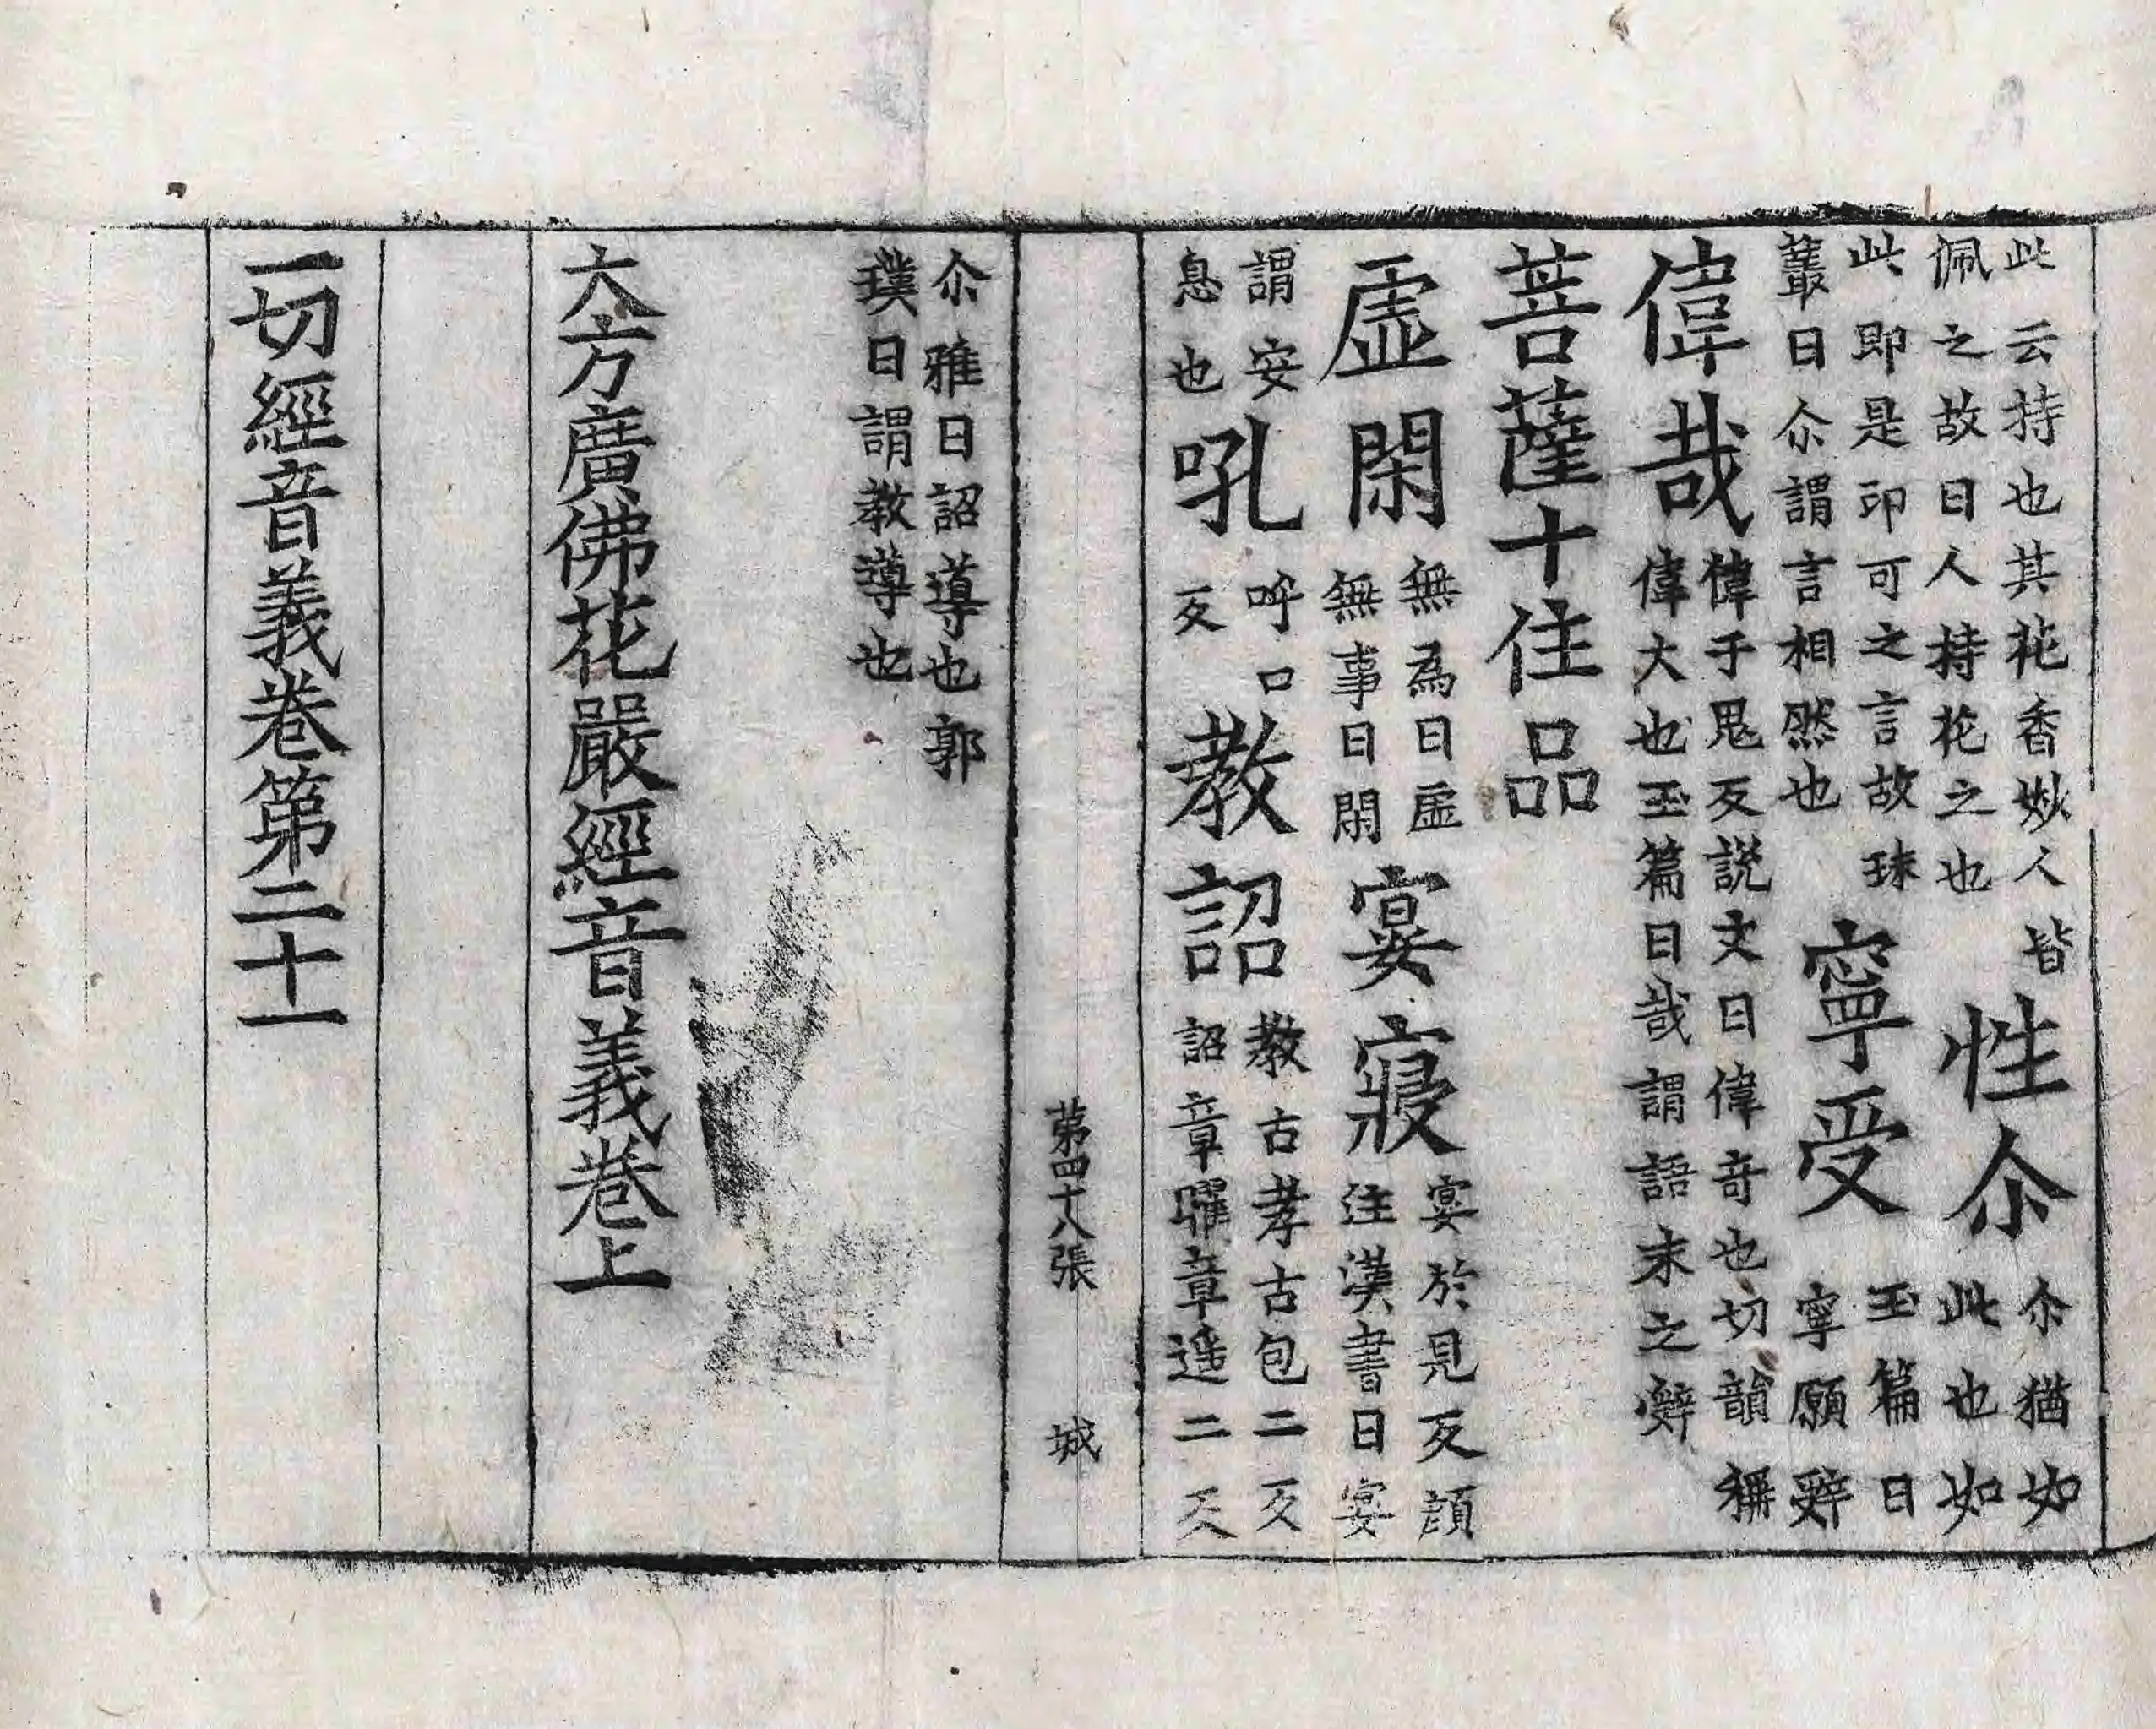 此云持也其花香妙人皆佩之故曰人持花之也性尒尒猶如此也如
此即是印可之言故珠叢曰尒謂言相然也寧受玉篇曰寧願辝
偉哉偉于鬼反說文曰偉竒也切韻稱偉大也玉篇曰哉謂語末之辤
菩薩十住品
虛閑無為曰虛無事曰閑宴寢宴於見反顔注漢書曰宴
謂安息也吼呼口反教詔教古孝古包二反詔章曜章遥二反
第四十八張 城
尒雅曰詔導也郭璞曰謂教導也
大方廣佛花嚴經音義卷上
一切經音義卷第二十一